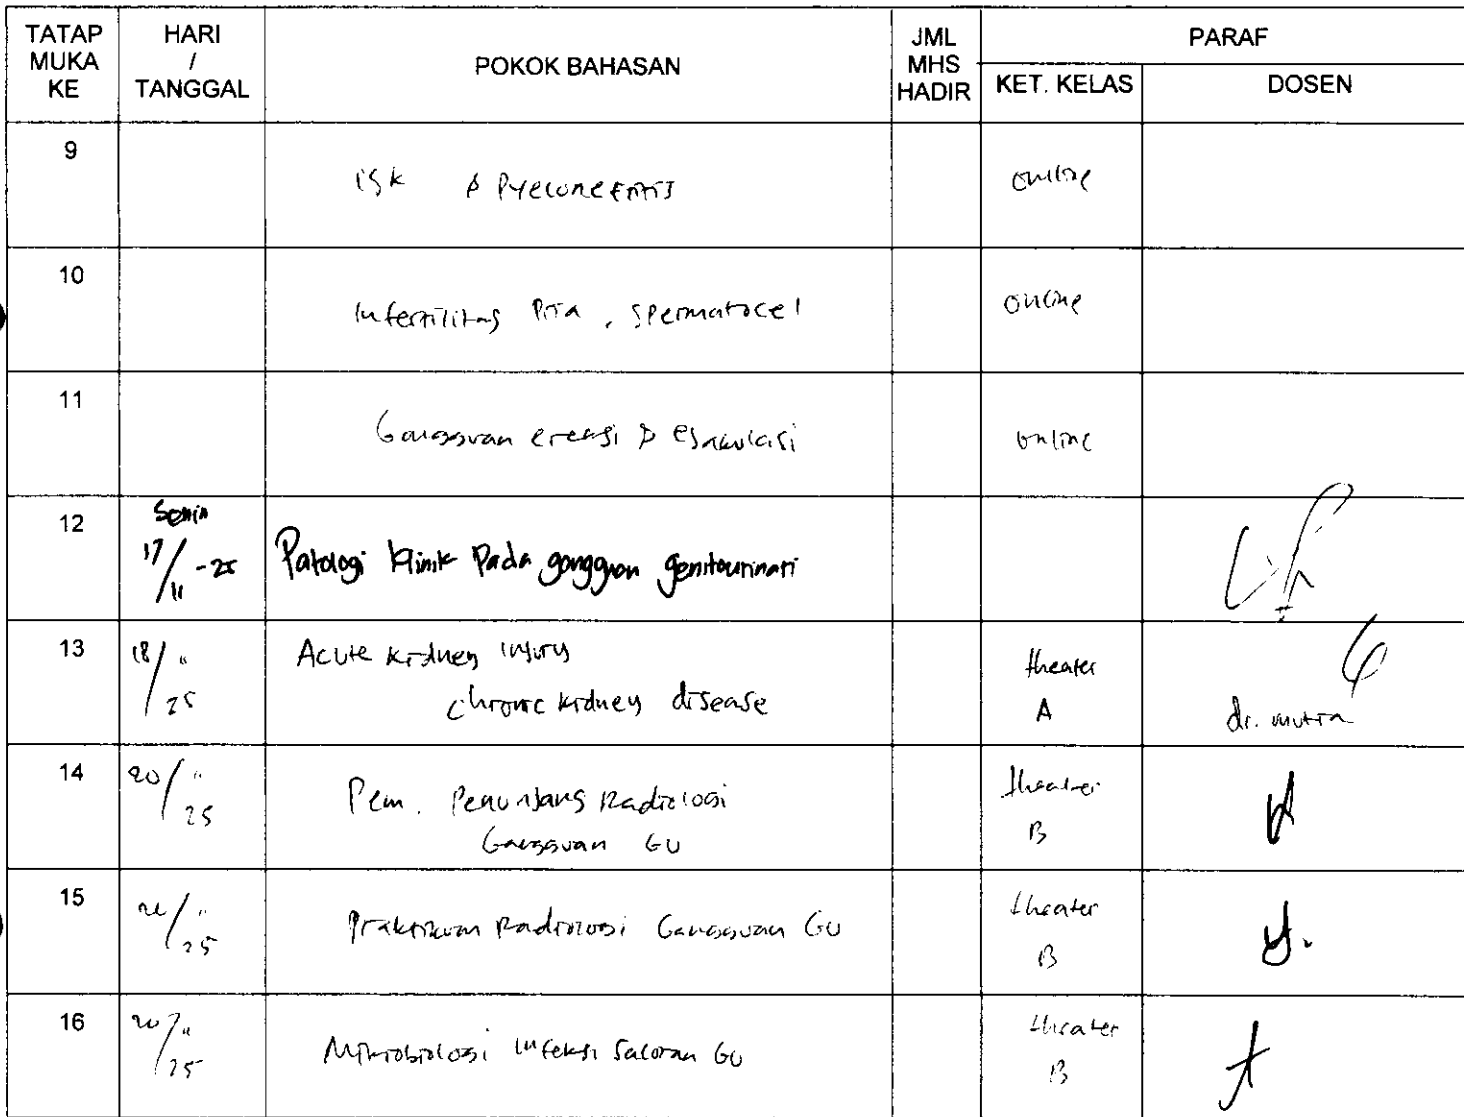 TATAP MUKA KE | HARI / TANGGAL | POKOK BAHASAN | JML MHS HADIR | PARAF
KET. KELAS | DOSEN
9 | ISK & Pyelonefritis | online
10 | Infertilitas Pria, Spermatocel | online
11 | Gangguan ereksi & Ejakulasi | online
12 | Senin 17/11-25 | Patologi Klinik Pada gangguan genitourinari
13 | 18/" 25 | Acute kidney injury
chronic kidney disease | theater A | dr. mutia
14 | 20/" 25 | Pem. Penunjang Radiologi
Gangguan GU | theater B
15 | /" 25 | Praktikum Radiologi Gangguan GU | theater B
16 | 20/" 25 | Mikrobiologi Infeksi Saluran GU | theater B